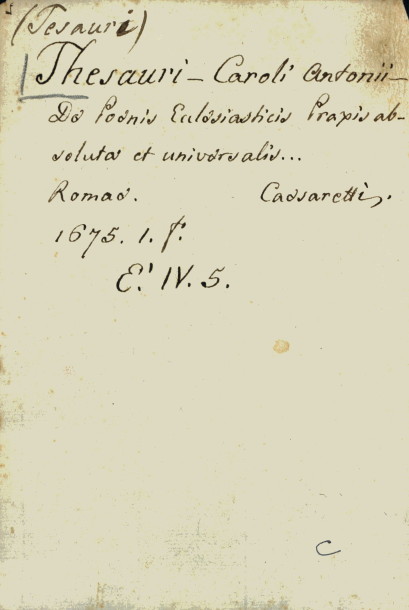 (Tesauri)
Thesauri - Caroli Antonii -
De Poenis Eclesiasticis Praxis ab-
soluta et universalis...
Romae. Caesaretti,.
1675. 1. f.
E.' IV. 5.
C